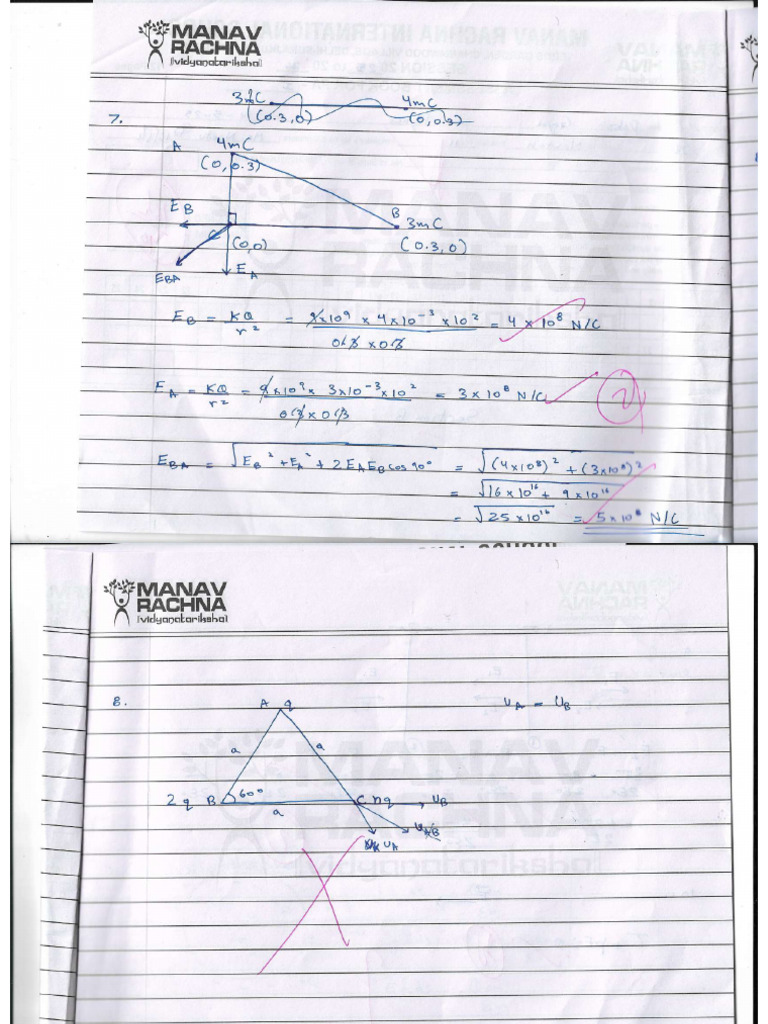 MANAV
RACHNA
vidyanatariksha
4mC
(0.3,0) (0,0.3)
7.
A 4mC
(0,0.3)
EB
B 3mC
(0,0) (0.3,0)
EBA EA
EB = KQ/r² = 9×10⁹ × 4×10⁻³ ×10²/0.3 × 0.3 = 4 × 10⁸ N/C
EA = KQ/r² = 9×10⁹ × 3×10⁻³ ×10²/0.3 × 0.3 = 3 × 10⁸ N/C
2
EBA = √EB² + EA² + 2EAEB cos 90° = √(4×10⁸)² + (3×10⁸)²
= √16 × 10¹⁶ + 9 × 10¹⁶
= √25 × 10¹⁶ = 5 × 10⁸ N/C
MANAV
RACHNA
vidyanatariksha
8. A q UA = UB
a a
2q B 60° C nq UB
a
UAB
UA